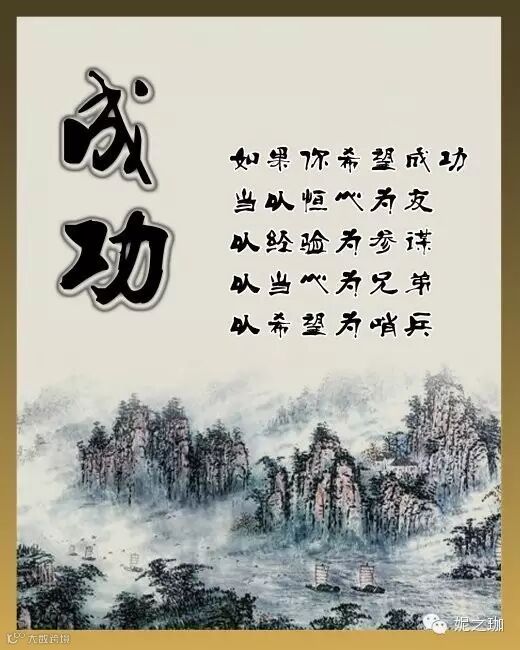 成功
如果你希望成功
当以恒心为友
以经验为参谋
以当心为兄弟
以希望为哨兵
妮之珈
大数跨境